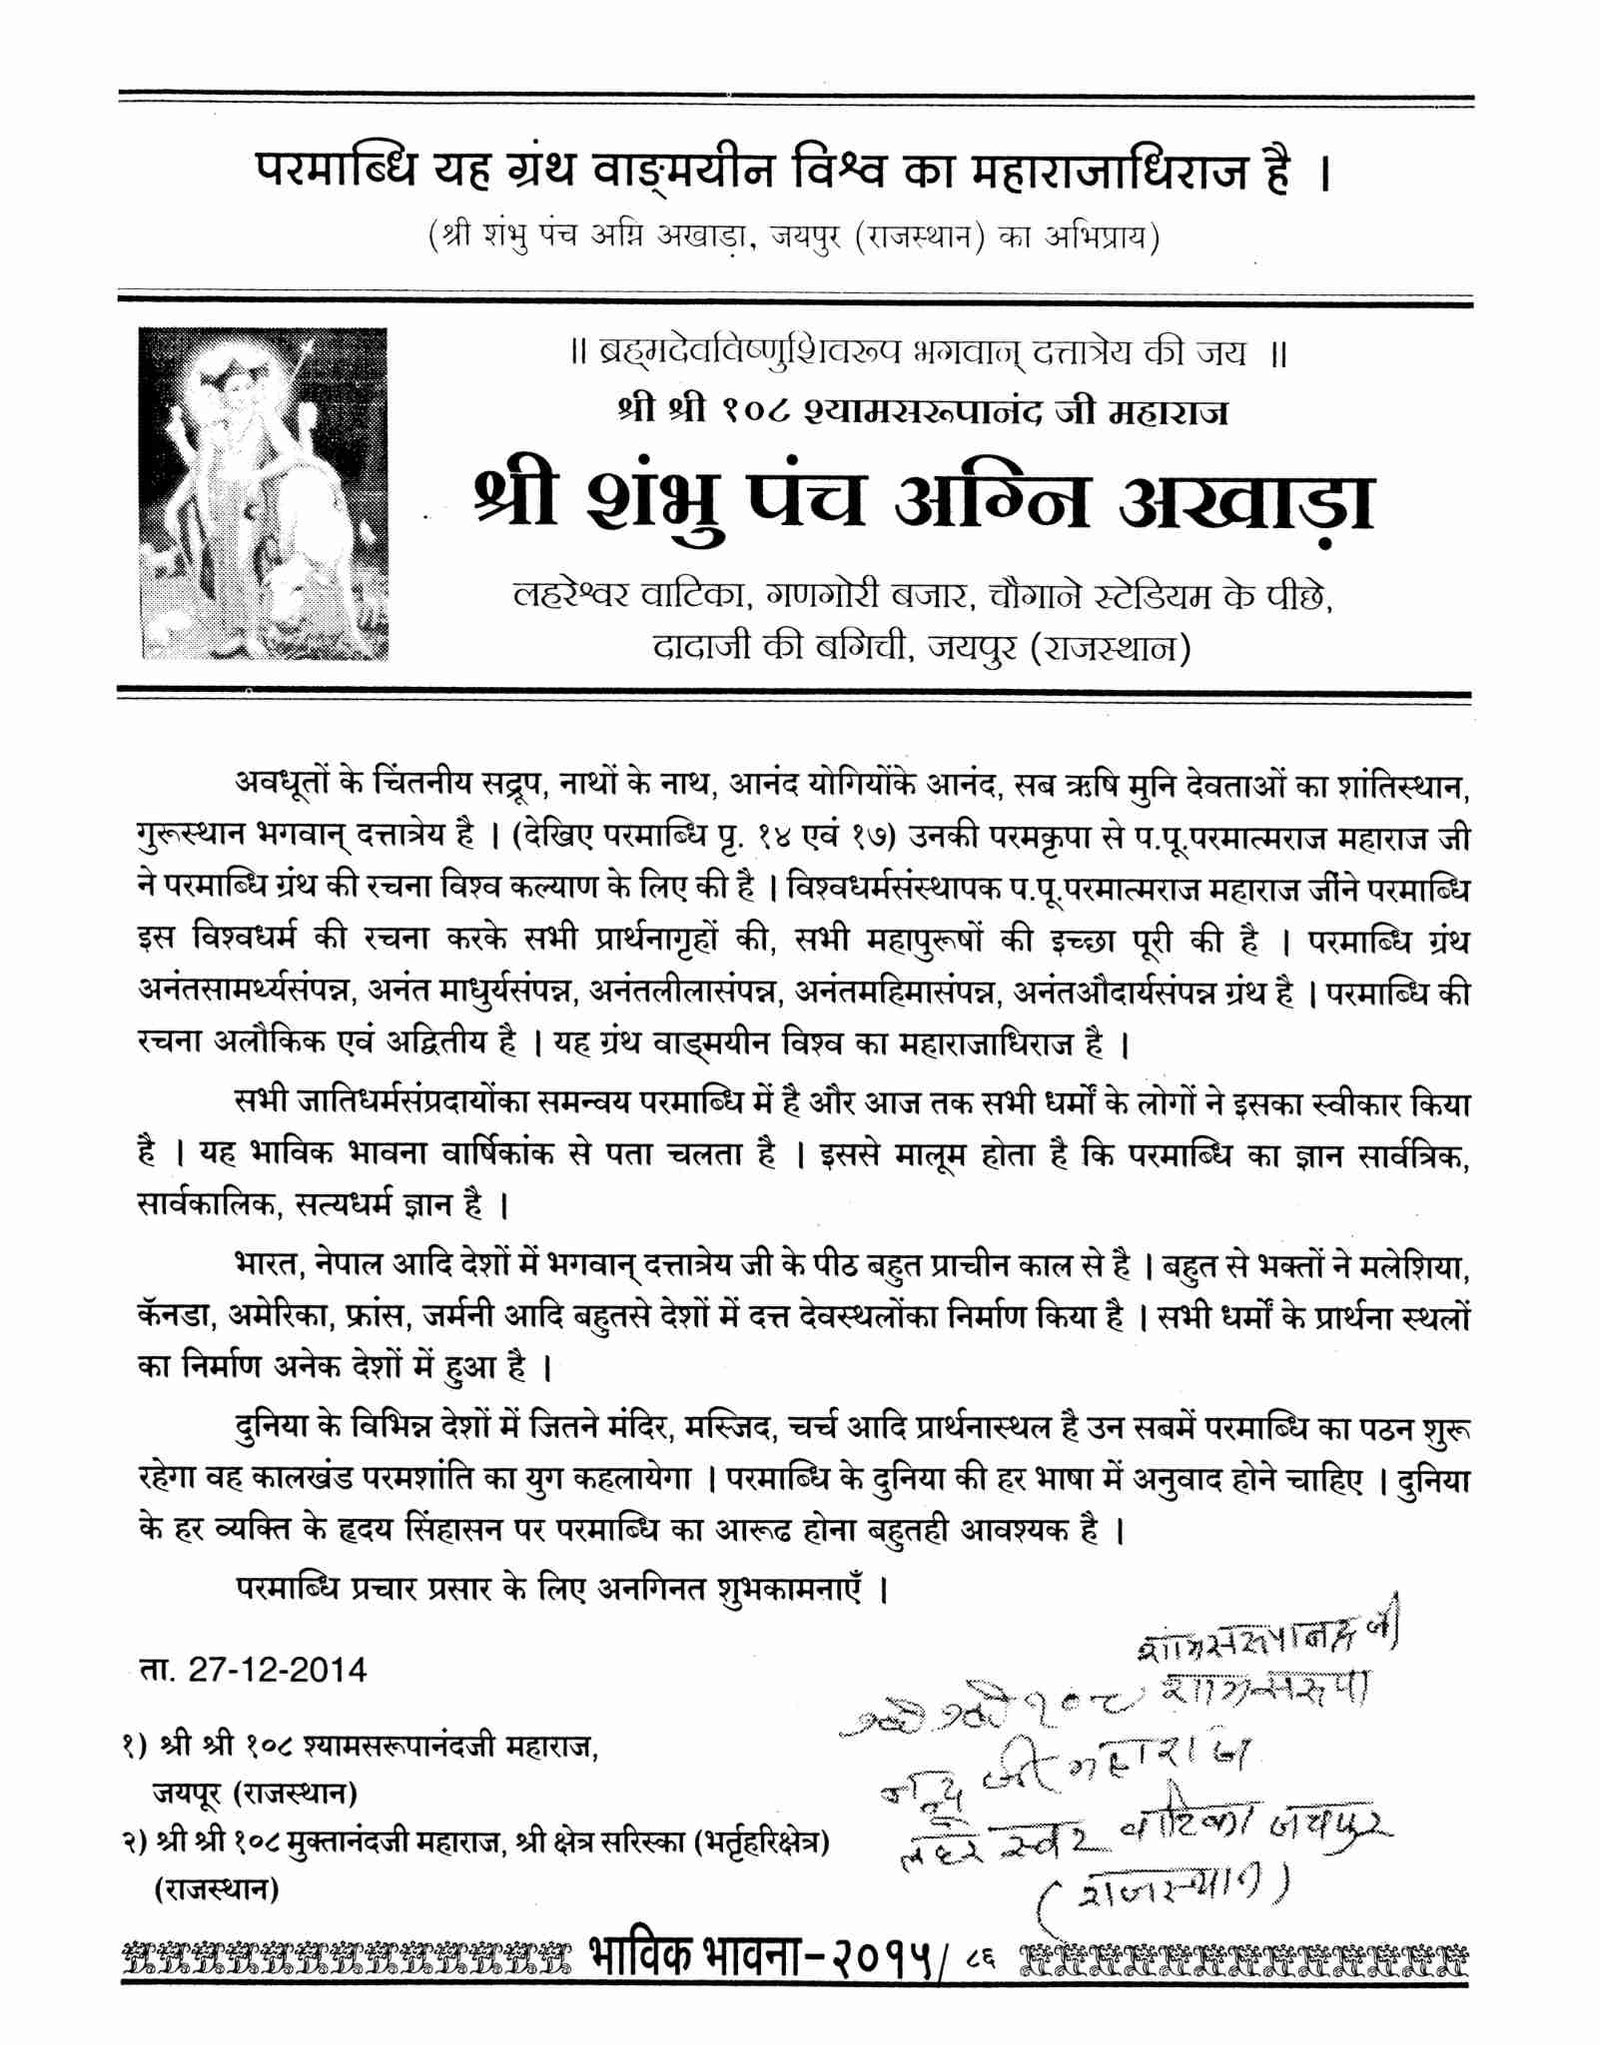 परमाब्धि यह ग्रंथ वाङ्मयीन विश्व का महाराजाधिराज है ।
(श्री शंभु पंच अग्नि अखाड़ा, जयपुर (राजस्थान) का अभिप्राय)
॥ ब्रह्मदेवविष्णुशिवरूप भगवान् दत्तात्रेय की जय ॥
श्री श्री १०८ श्यामसरूपानंद जी महाराज
श्री शंभु पंच अग्नि अखाड़ा
लहरेश्वर वाटिका, गणगोरी बजार, चौगाने स्टेडियम के पीछे,
दादाजी की बगिची, जयपुर (राजस्थान)
अवधूतों के चिंतनीय सद्रूप, नाथों के नाथ, आनंद योगियोंके आनंद, सब ऋषि मुनि देवताओं का शांतिस्थान,
गुरूस्थान भगवान् दत्तात्रेय है । (देखिए परमाब्धि पृ. १४ एवं १७) उनकी परमकृपा से प.पू.परमात्मराज महाराज जी
ने परमाब्धि ग्रंथ की रचना विश्व कल्याण के लिए की है । विश्वधर्मसंस्थापक प.पू.परमात्मराज महाराज जींने परमाब्धि
इस विश्वधर्म की रचना करके सभी प्रार्थनागृहों की, सभी महापुरूषों की इच्छा पूरी की है । परमाब्धि ग्रंथ
अनंतसामर्थ्यसंपन्न, अनंत माधुर्यसंपन्न, अनंतलीलासंपन्न, अनंतमहिमासंपन्न, अनंतऔदार्यसंपन्न ग्रंथ है । परमाब्धि की
रचना अलौकिक एवं अद्वितीय है । यह ग्रंथ वाड्मयीन विश्व का महाराजाधिराज है ।
सभी जातिधर्मसंप्रदायोंका समन्वय परमाब्धि में है और आज तक सभी धर्मों के लोगों ने इसका स्वीकार किया
है । यह भाविक भावना वार्षिकांक से पता चलता है । इससे मालूम होता है कि परमाब्धि का ज्ञान सार्वत्रिक,
सार्वकालिक, सत्यधर्म ज्ञान है ।
भारत, नेपाल आदि देशों में भगवान् दत्तात्रेय जी के पीठ बहुत प्राचीन काल से है । बहुत से भक्तों ने मलेशिया,
कॅनडा, अमेरिका, फ्रांस, जर्मनी आदि बहुतसे देशों में दत्त देवस्थलोंका निर्माण किया है । सभी धर्मों के प्रार्थना स्थलों
का निर्माण अनेक देशों में हुआ है ।
दुनिया के विभिन्न देशों में जितने मंदिर, मस्जिद, चर्च आदि प्रार्थनास्थल है उन सबमें परमाब्धि का पठन शुरू
रहेगा वह कालखंड परमशांति का युग कहलायेगा । परमाब्धि के दुनिया की हर भाषा में अनुवाद होने चाहिए । दुनिया
के हर व्यक्ति के हृदय सिंहासन पर परमाब्धि का आरूढ होना बहुतही आवश्यक है ।
परमाब्धि प्रचार प्रसार के लिए अनगिनत शुभकामनाएँ ।
ता. 27-12-2014
१) श्री श्री १०८ श्यामसरूपानंदजी महाराज,
जयपूर (राजस्थान)
२) श्री श्री १०८ मुक्तानंदजी महाराज, श्री क्षेत्र सरिस्का (भर्तृहरिक्षेत्र)
(राजस्थान)
श्री श्री १०८
जी महाराज
लहरे स्वर वाटिका जयपुर
(राजस्थान)
भाविक भावना-२०१५/ ८६